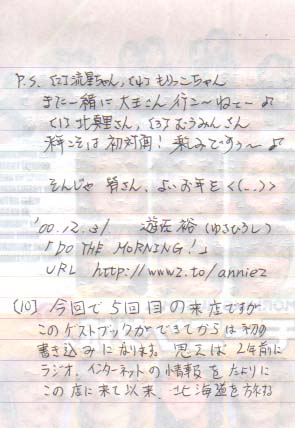 P.S. [2]流星ちゃん, [4]もりっこちゃん
また一緒に大王さん行こ〜ねぇ〜♪
[1]北奥里さん, [3]むうみんさん
来年こそは初対面! 楽しみですぅ〜♪
そんじゃ皆さん、よいお年を<(_ _)>
'00.12.31 遊佐 裕(ゆさひろし)
「DO THE MORNING!」
URL http://www2.to/annie2
[10] 今回で5回目の来店ですが
このゲストブックができてからは初の
書き込みになります。思えば2年前に
ラジオ、インターネットの情報をたよりに
この店に来て以来、北海道を訪ねる